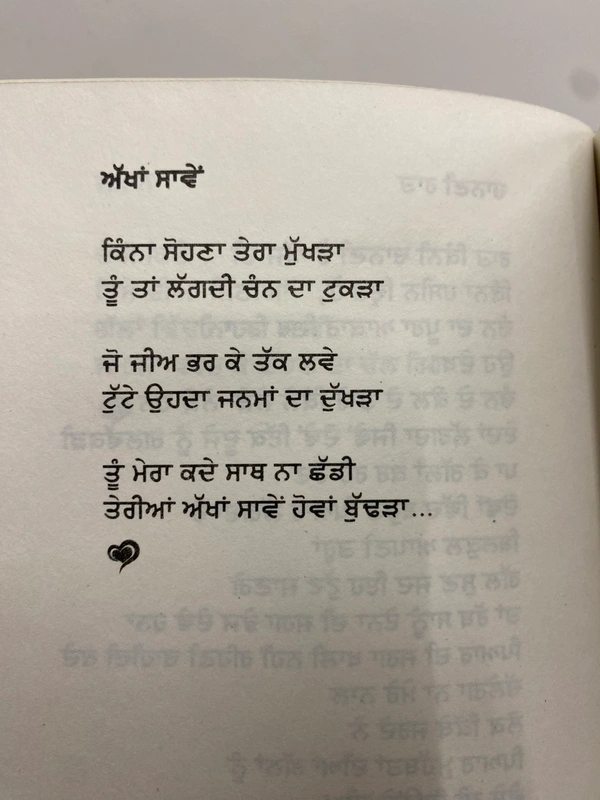 ਅੱਖਾਂ ਸਾਵੇਂ
ਕਿੰਨਾ ਸੋਹਣਾ ਤੇਰਾ ਮੁੱਖੜਾ
ਤੂੰ ਤਾਂ ਲੱਗਦੀ ਚੰਨ ਦਾ ਟੁਕੜਾ
ਜੋ ਜੀਅ ਭਰ ਕੇ ਤੱਕ ਲਵੇ
ਟੁੱਟੇ ਉਹਦਾ ਜਨਮਾਂ ਦਾ ਦੁੱਖੜਾ
ਤੂੰ ਮੇਰਾ ਕਦੇ ਸਾਥ ਨਾ ਛੱਡੀ
ਤੇਰੀਆਂ ਅੱਖਾਂ ਸਾਵੇਂ ਹੋਵਾਂ ਬੁੱਢੜਾ...